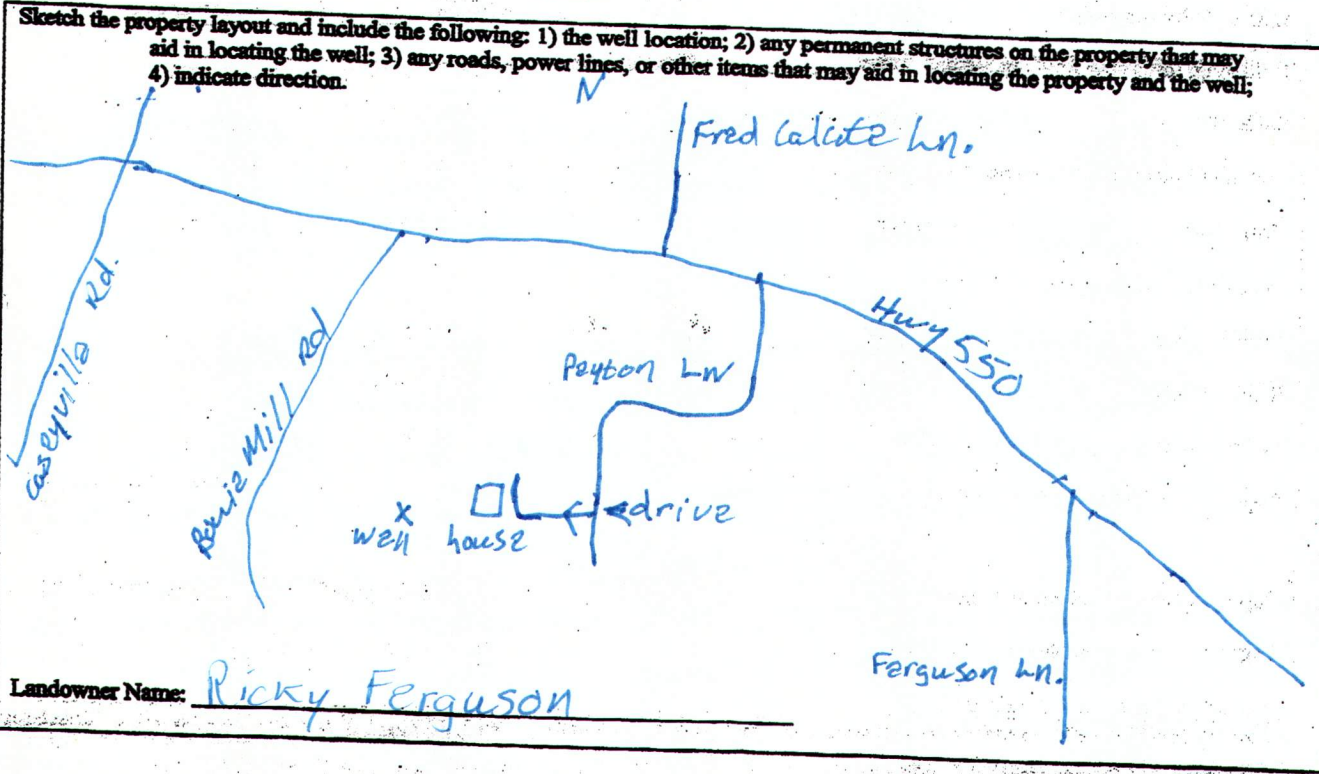 Sketch the property layout and include the following: 1) the well location; 2) any permanent structures on the property that may
aid in locating the well; 3) any roads, power lines, or other items that may aid in locating the property and the well;
4) indicate direction.
N
Fred Calcote Ln.
Caseyville Rd.
Mill Rd
Hwy 550
Peyton LN
drive
well house
Ferguson Ln.
Landowner Name: Ricky Ferguson